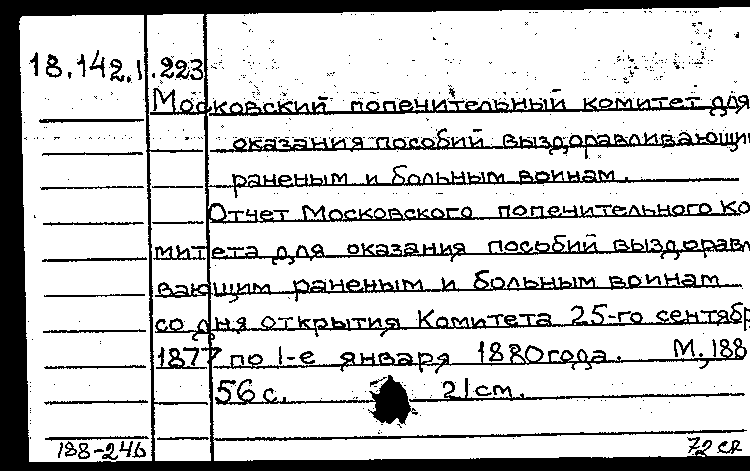 18.142.1.223
Московский попечительный комитет для
оказания пособий выздоравливающи
раненым и больным воинам.
Отчет Московского попечительного Ко
митета для оказания пособий выздоравл
вающим раненым и больным воинам
со дня открытия Комитета 25-го сентябр
1877 по 1-е января 1880 года. М., 188
56 с. 21 см.
188-246 72